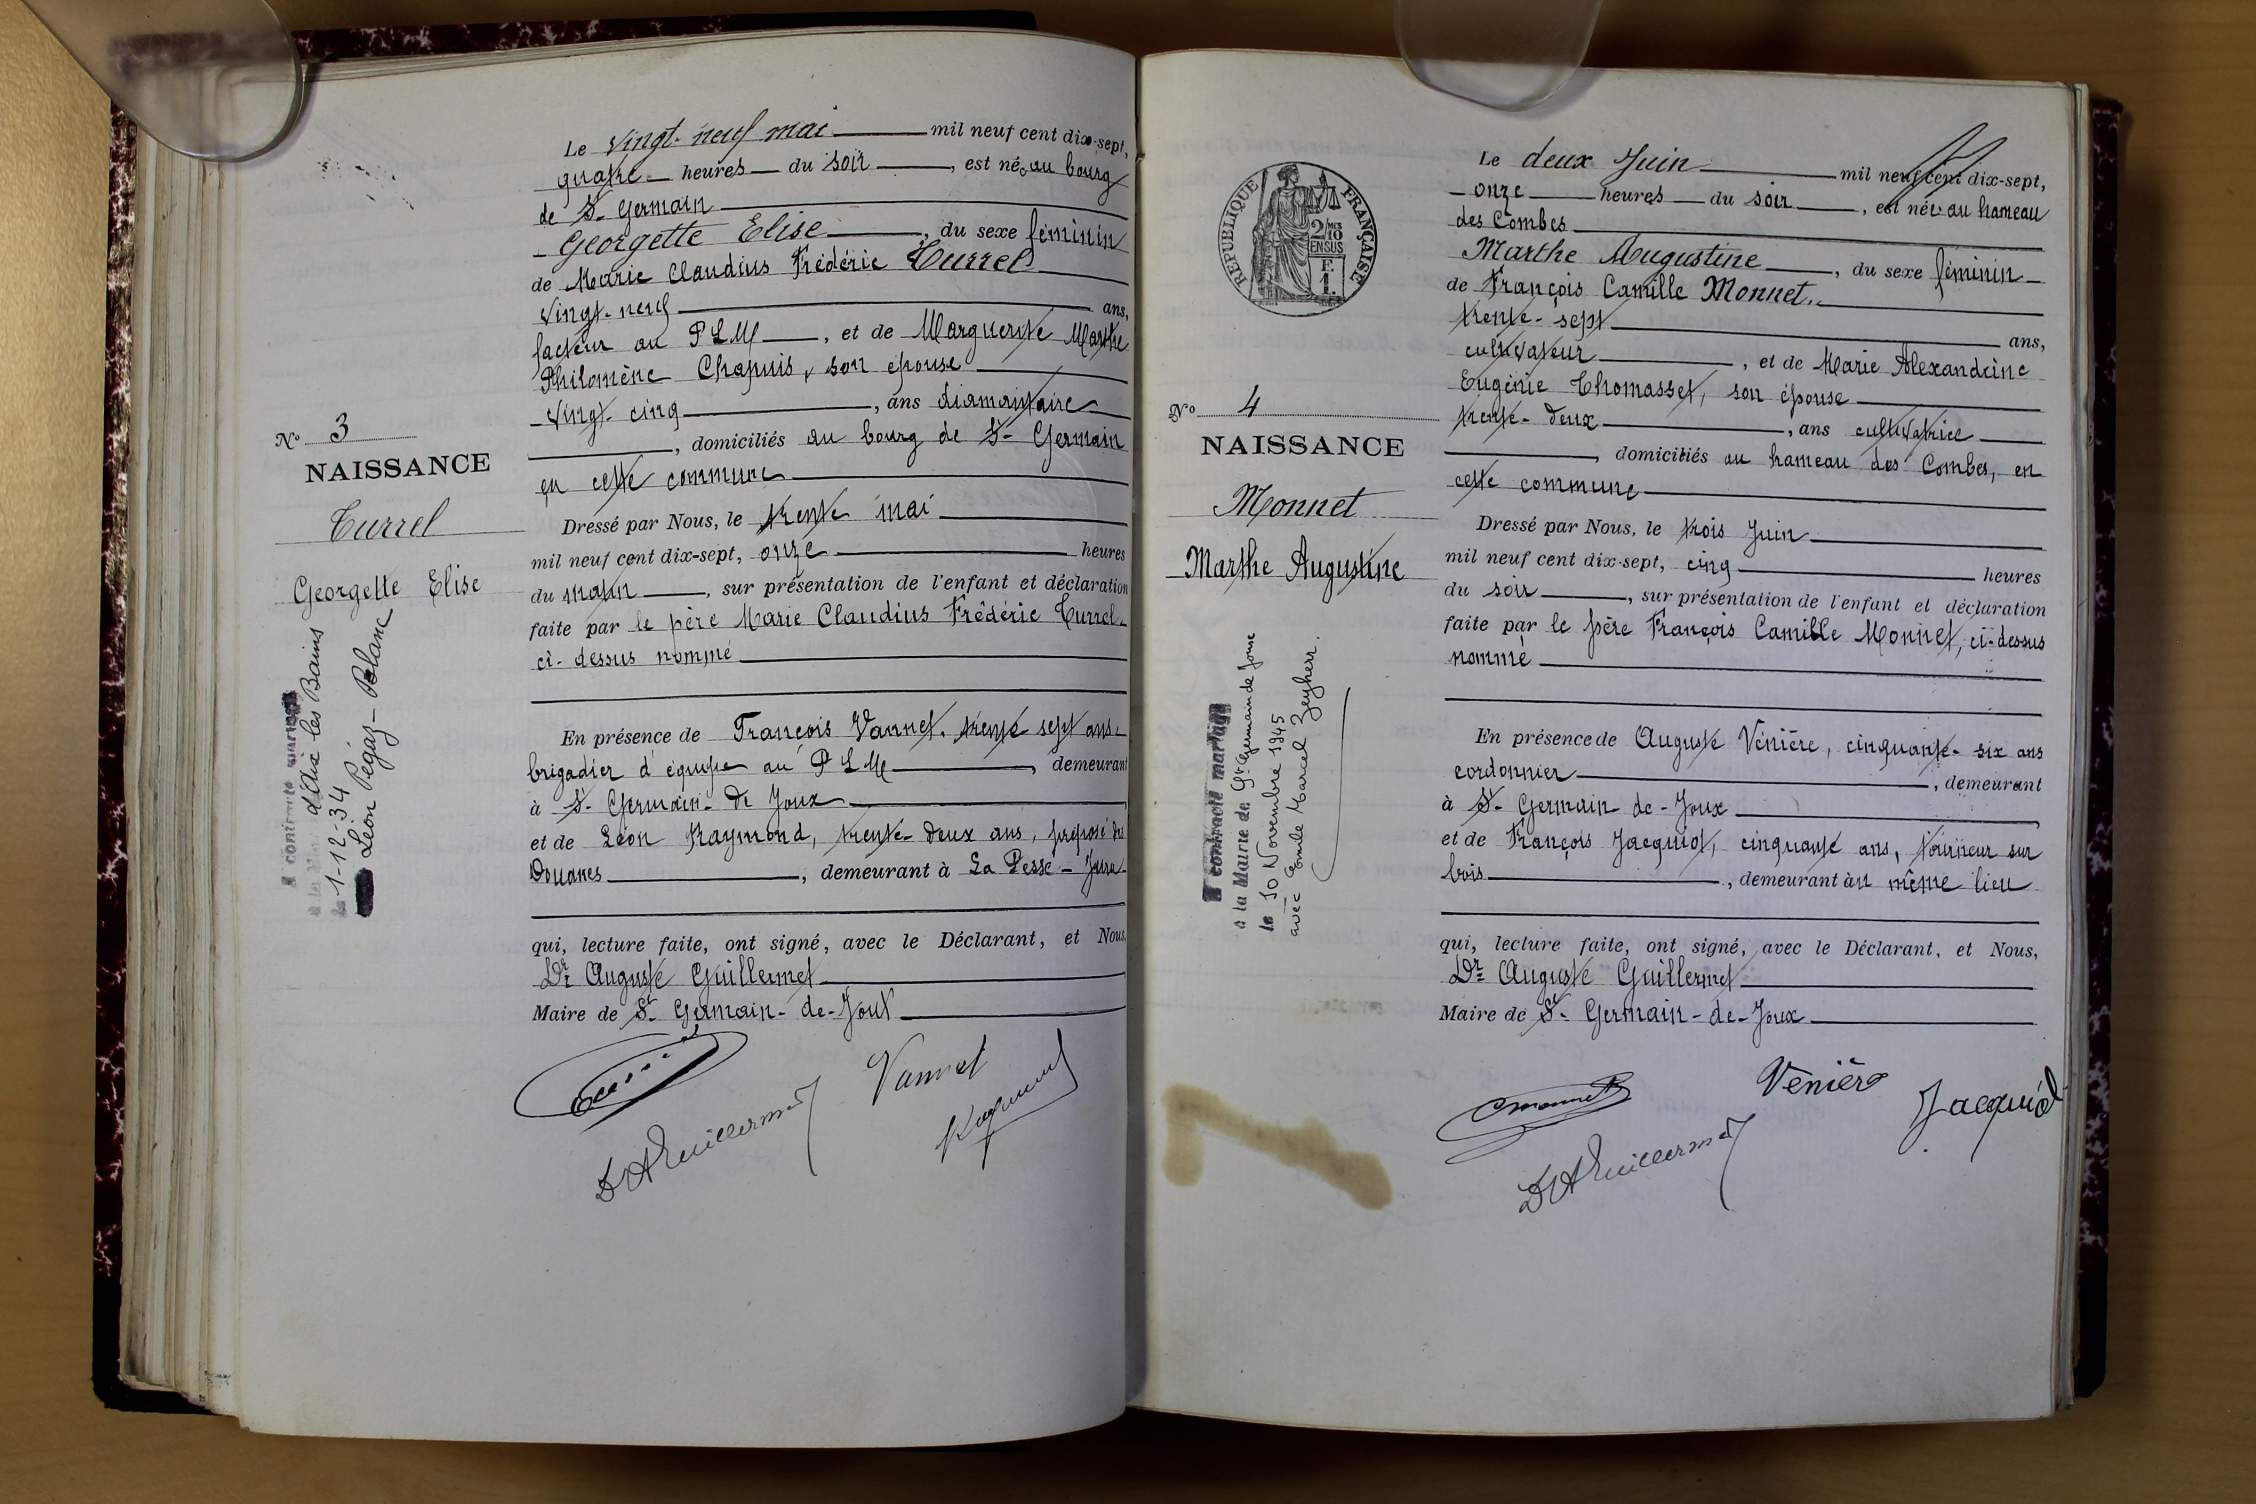 Le Vingt-neuf mai mil neuf cent dix-sept,
quatre heures du soir, est née au bourg
de St Germain
Georgette Elise, du sexe féminin
de Marie Claudius Frédéric Turrel
Vingt-neuf ans,
facteur au PLM, et de Marguerite Marthe
Philomène Chapuis, son épouse
Vingt-cinq, ans diamantaire
, domiciliés au bourg de St Germain
en cette commune
Dressé par Nous, le trente mai
mil neuf cent dix-sept, onze heures
du matin, sur présentation de l'enfant et déclaration
faite par le père Marie Claudius Frédéric Turrel
ci-dessus nommé
En présence de François Vannet, trente sept ans
brigadier d'équipe au PLM, demeurant
à St Germain-de Joux
et de Léon Raymond, trente-deux ans, préposé des
Douanes, demeurant à La Pesse-Jura
qui, lecture faite, ont signé, avec le Déclarant, et Nous,
Dr Auguste Guillermet
Maire de St Germain-de-Joux
Vannet
DrAGuillermet
Raymond
No 3
NAISSANCE
Turrel
Georgette Elise
A contracté mariage
à la Mairie d'Aix les Bains
le 1-12-34
Léon Pégaz-Blanc
RÉPUBLIQUE FRANÇAISE
2/10
EN SUS
F.
1.
No 4
NAISSANCE
Monnet
Marthe Augustine
A contracté mariage
à la Mairie de St Germain de Joux
le 10 Novembre 1945
avec Camille Marcel Zeyherr.
Le deux Juin mil neuf cent dix-sept,
onze heures du soir, est née au hameau
des Combes
Marthe Augustine, du sexe féminin
de François Camille Monnet,
trente-sept ans,
cultivateur, et de Marie Alexandrine
Eugénie Thomasset, son épouse
trente-deux, ans cultivatrice
, domiciliés au hameau des Combes, en
cette commune
Dressé par Nous, le trois Juin
mil neuf cent dix-sept, cinq heures
du soir, sur présentation de l'enfant et déclaration
faite par le père François Camille Monnet, ci-dessus
nommé
En présence de Auguste Vénière, cinquante-six ans
cordonnier, demeurant
à St Germain-de-Joux
et de François Jacquiot, cinquante ans, tourneur sur
bois, demeurant àu même lieu
qui, lecture faite, ont signé, avec le Déclarant, et Nous,
Dr Auguste Guillermet
Maire de St Germain-de-Joux
CMonnet
Vénière
Jacquiot
DrAGuillermet